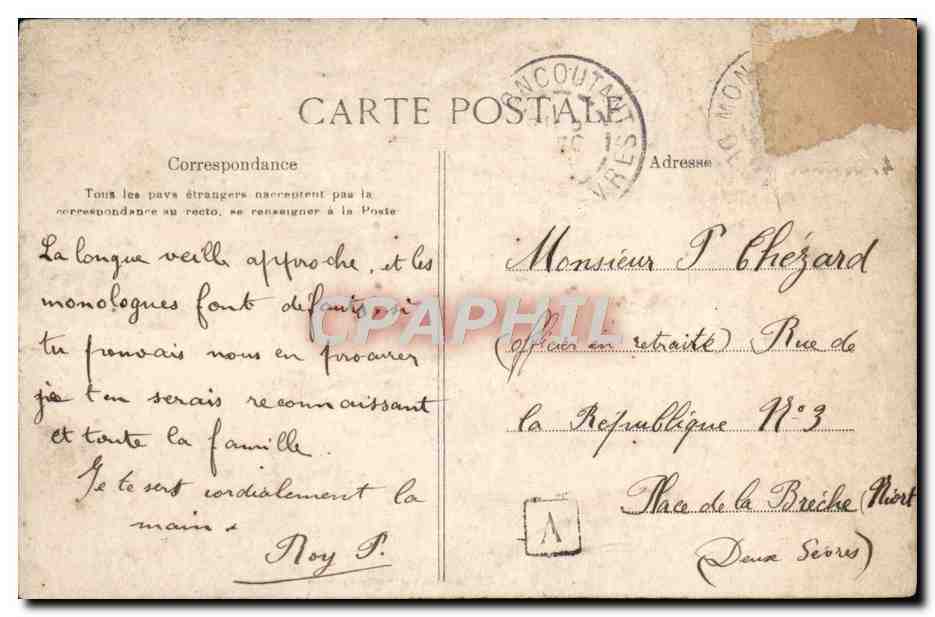 CARTE POSTALE
ONCOUTANT
VRES
MON
Correspondance
Tous les pays étrangers n'acceptent pas la
correspondance au recto, se renseigner à la Poste
La longue veille approche, et les
monologues font défauts, si
tu pouvais nous en procurer
je t'en serais reconnaissant
et toute la famille.
Je te sers cordialement la
main.
Roy P.
Adresse
Monsieur P Chézard
(officier en retraite) Rue de
la République N° 3
Place de la Brèche (Niort
(Deux Sèvres)
A
CPAPHIL